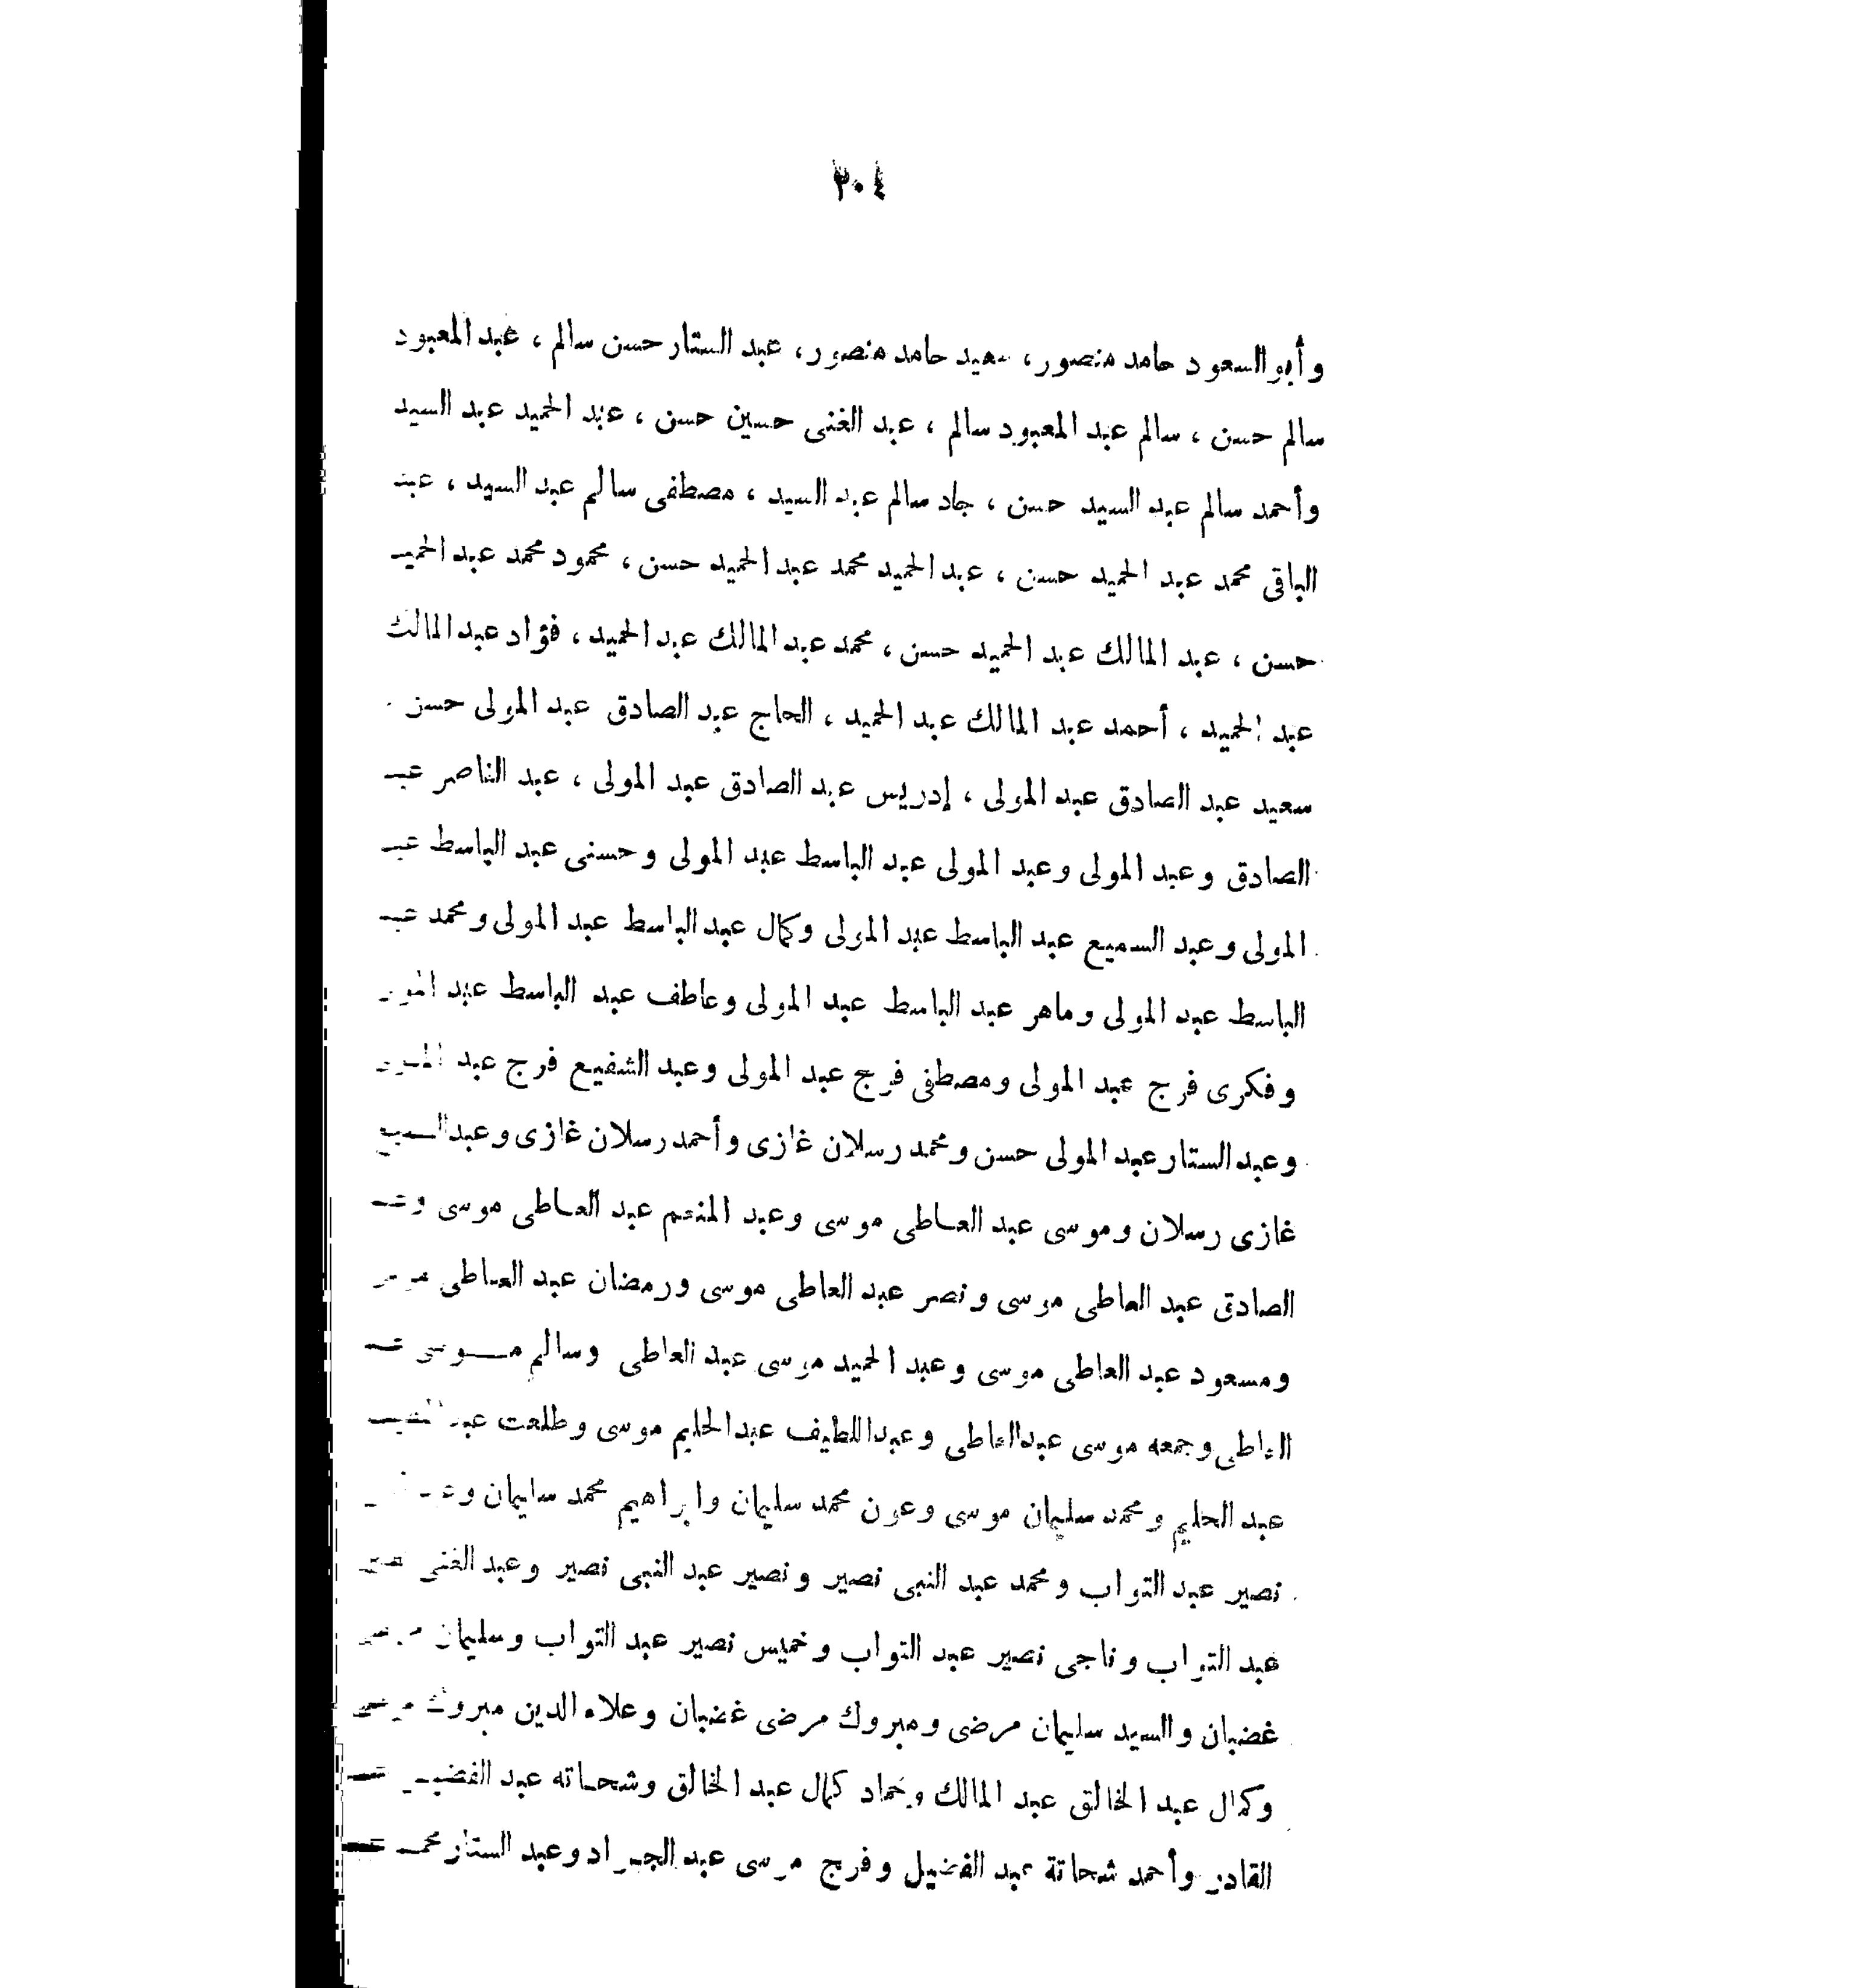 ٣٠٤
وأبو السعود حامد منصور، سعيد حامد منصور، عبد الستار حسن سالم ، عبد المعبود
سالم حسن ، سالم عبد المعبود سالم ، عبد الغنى حسين حسن ، عبد الحميد عبد السيد
وأحمد سالم عبد السيد حسن ، جاد سالم عبد السيد ، مصطفى سالم عبد السيد ، عبد
الباقى محمد عبد الحميد حسن ، عبد الحميد محمد عبد الحميد حسن ، محمود محمد عبد الحميد
حسن ، عبد المالك عبد الحميد حسن ، محمد عبد المالك عبد الحميد ، فؤاد عبد المالك
عبد الحميد ، أحمد عبد المالك عبد الحميد ، الحاج عبد الصادق عبد المولى حسن
سعيد عبد الصادق عبد المولى ، إدريس عبد الصادق عبد المولى ، عبد الناصر عبد
الصادق وعبد المولى وعبد المولى عبد الباسط عبد المولى وحسنى عبد الباسط عبد
المولى وعبد السميع عبد الباسط عبد المولى وكمال عبد الباسط عبد المولى ومحمد عبد
الباسط عبد المولى وماهر عبد الباسط عبد المولى وعاطف عبد الباسط عبد المولى
وفكرى فرج عبد المولى ومصطفى فرج عبد المولى وعبد الشفيع فرج عبد المولى
وعبد الستار عبد المولى حسن ومحمد رسلان غازى وأحمد رسلان غازى وعبد السميع
غازى رسلان وموسى عبد العاطى موسى وعبد المنعم عبد العاطى موسى وعبد
الصادق عبد العاطى موسى ونصر عبد العاطى موسى ورمضان عبد العاطى موسى
ومسعود عبد العاطى موسى وعبد الحميد موسى عبد العاطى وسالم موسى عبد
العاطى وجمعه موسى عبد العاطى وعبد اللطيف عبد الحليم موسى وطلعت عبد اللطيف
عبد الحليم ومحمد سليمان موسى وعون محمد سليمان وابراهيم محمد سليمان
نصير عبد التواب ومحمد عبد النبى نصير ونصير عبد النبى نصير وعبد الغنى نصير
عبد التواب وناجى نصير عبد التواب وخميس نصير عبد التواب وسليمان مرضى
غضبان والسيد سليمان مرضى ومبروك مرضى غضبان وعلاء الدين مبروك مرضى
وكمال عبد الخالق عبد المالك وحماد كمال عبد الخالق وشحاته عبد الفضيل عبد
القادر وأحمد شحاتة عبد الفضيل وفرج مرسى عبد الجواد وعبد الستار محمد عبد